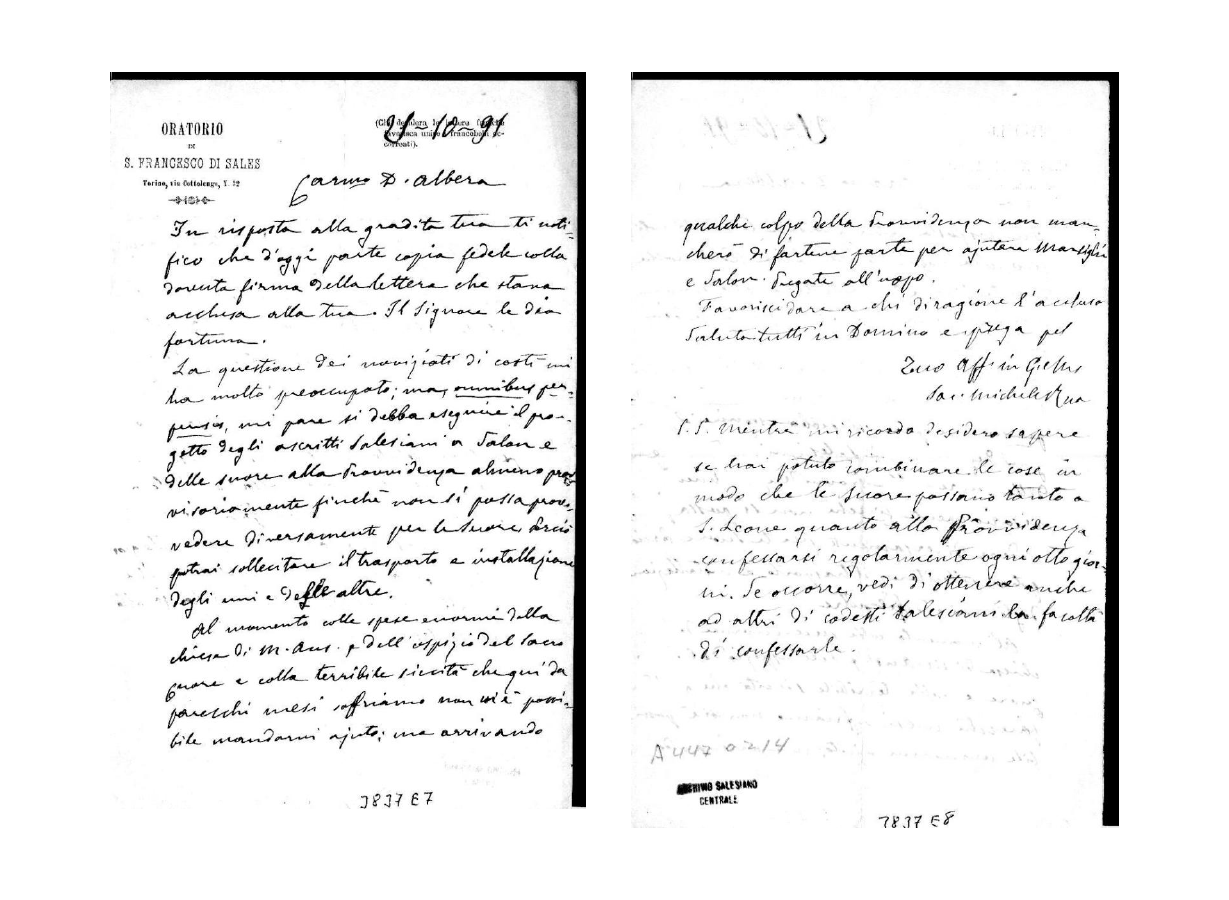 ORATORIO
DI
S. FRANCESCO DI SALES
Torino, via Cottolengo, N. 32
21-10-91
(Chi desidera la lettera
unire i francobolli oc-
correnti).
Carmo D. Albera
In risposta alla gradita tua ti noti-
fico che d'oggi parte copia fedele colla
dovuta firma della lettera che stava
acclusa alla tua. Il Signore le dia
fortuna.
La questione dei novizi di costì mi
ha molto preoccupato; ma, omnibus per-
pensis, mi pare si debba eseguire il pro-
getto degli ascritti Salesiani a Salon e
delle suore alla Provvidenza almeno prov-
visoriamente finchè non si possa prov-
vedere diversamente per le Suore. Perciò
potrai sollecitare il trasporto e installazione
degli uni e delle altre.
Al momento colle spese enormi della
chiesa di M. Aus. e dell'ospizio del Sacro
Cuore e colla terribile siccità che qui da
parecchi mesi soffriamo non mi è possi-
bile mandarvi ajuto; ma arrivando
3837 E7
qualche colpo della Provvidenza non man-
cherò di fartene parte per ajutare Marsiglia
e Salon. Pregate all'uopo.
Favorisci dare a chi di ragione l'accluso
Saluta tutti in Domino e prega pel
Tuo Aff. in G. e M.
Sac. Michele Rua
P.S. Mentre mi ricordo desidero sapere
se hai potuto combinare le cose in
modo che le Suore possano tanto a
S. Leone quanto alla Provvidenza
confessarsi regolarmente ogni otto gior-
ni. Se occorre, vedi di ottenere anche
ad altri di codesti Salesiani la facoltà
di confessarle.
A 447 0214
ARCHIVIO SALESIANO
CENTRALE
3837 E8